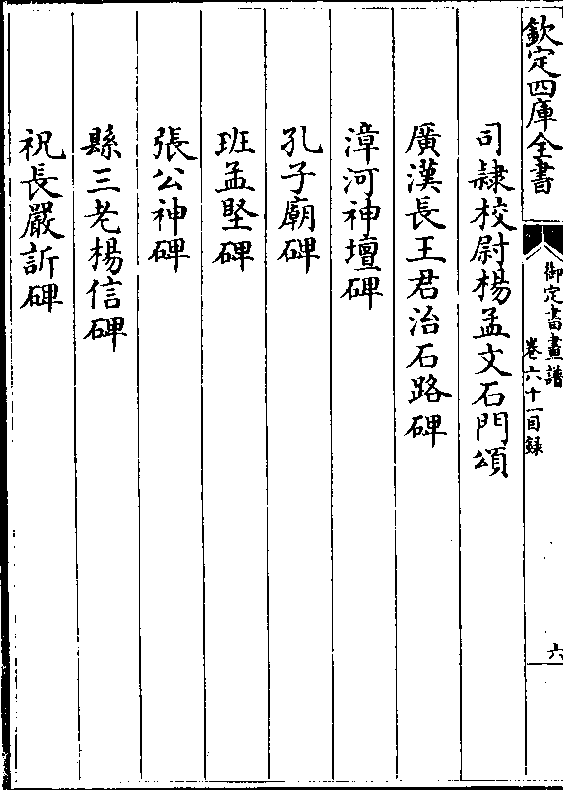 欽定四庫全書
御定書畫譜
卷六十一目録
六
司隷校尉楊孟文石門頌
廣漢長王君治石路碑
漳河神壇碑
孔子廟碑
班孟堅碑
張公神碑
縣三老楊信碑
祝長嚴訢碑